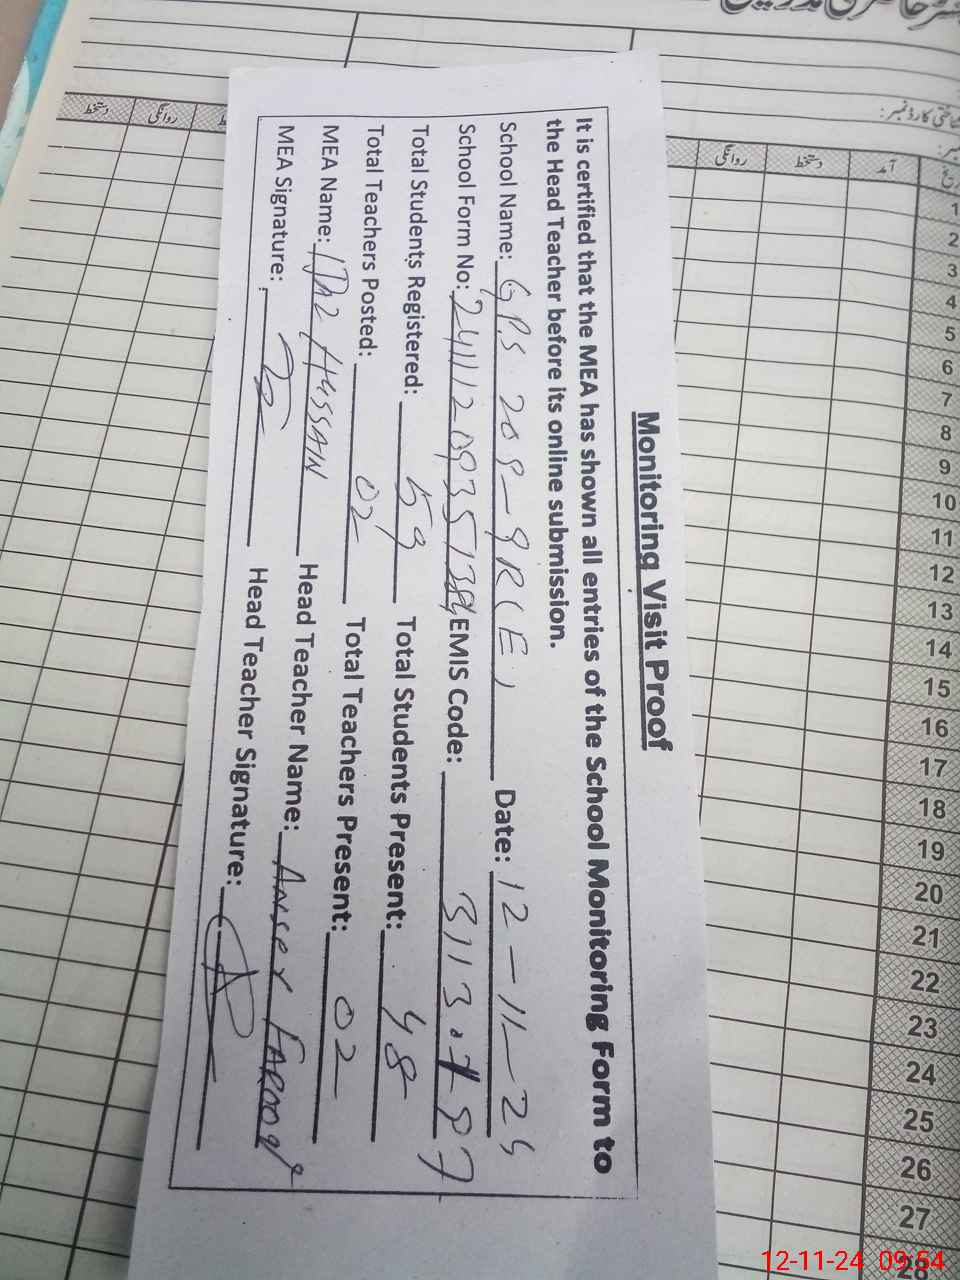 Monitoring Visit Proof
It is certified that the MEA has shown all entries of the School Monitoring Form to
the Head Teacher before its online submission.
School Name: G.P.S 208-9R(E) Date: 12-11-24
School Form No: EMIS Code:
Total Students Registered: 59 Total Students Present: 48
Total Teachers Posted: 02 Total Teachers Present: 02
MEA Name: HUSSAIN Head Teacher Name: FAROOQ
MEA Signature: Head Teacher Signature:
دستخط روانگی
روانگی دستخط آمد
1
2
3
4
5
6
7
8
9
10
11
12
13
14
15
16
17
18
19
20
21
22
23
24
25
26
27
28
12-11-24 09:54